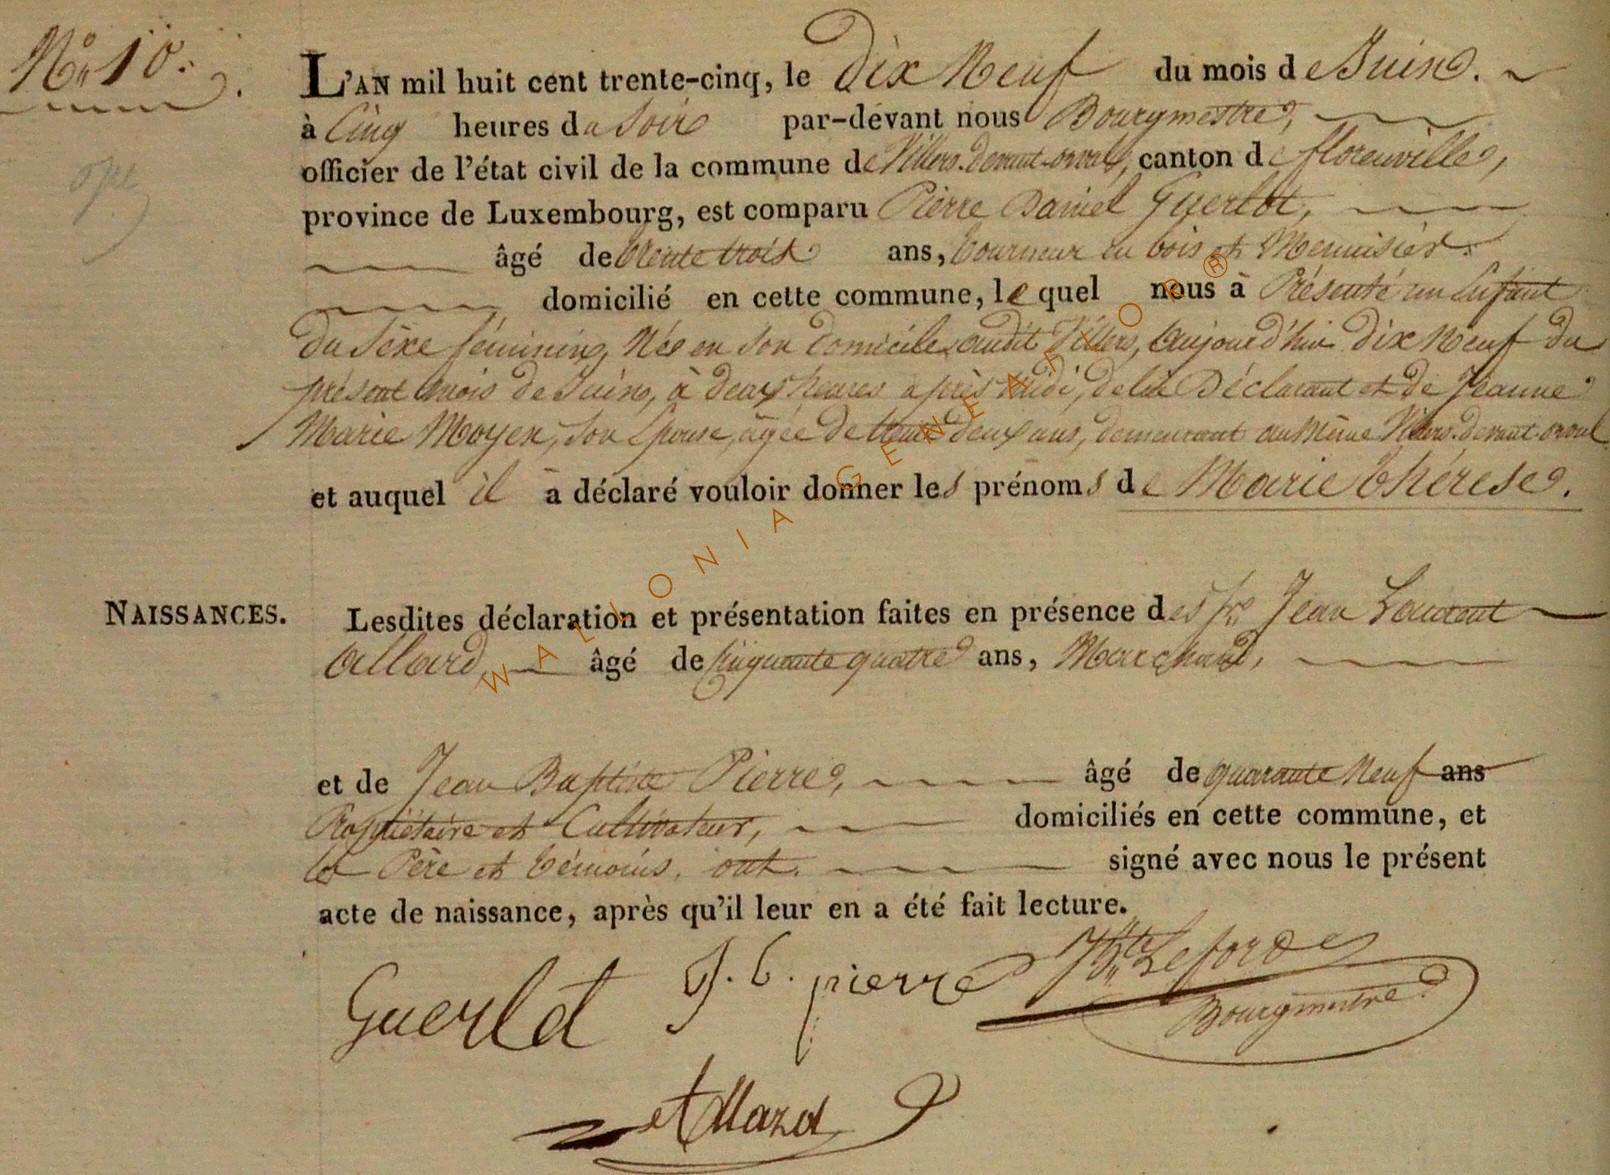 N° 10.
L'AN mil huit cent trente-cinq, le Dix Neuf du mois de Juin.
à Cinq heures du Soir par-devant nous Bourgmestre,
officier de l'état civil de la commune de Villers-devant-orval, canton de florenville,
province de Luxembourg, est comparu Pierre Daniel Guerlot,
âgé de trente trois ans, tourneur en bois et Menuisier.
domicilié en cette commune, lequel nous à Présenté un Enfant
du Sèxe féminin, Née en son domicile, audit Villers, aujourd'hui dix Neuf du
présent mois de Juin, à deux heures après Midi, de lui Déclarant et de Jeanne
Marie Moyen, son Epouse, âgée de trente deux ans, demeurant au Même Villers-devant-orval
et auquel il à déclaré vouloir donner les prénoms de Marie thérese.
NAISSANCES.
Lesdites déclaration et présentation faites en présence des Srs Jean Laurent
allard, âgé de Cinquante quatre ans, Marchand,
et de Jean Baptiste Pierre, âgé de quarante Neuf ans
Propriétaire et Cultivateur, domiciliés en cette commune, et
les Père et témoins, ont signé avec nous le présent
acte de naissance, après qu'il leur en a été fait lecture.
Guerlot J. b. pierre Jh Bte Leforde
Bourgmestre
allard
WALLONIA-GENEAFLOR®